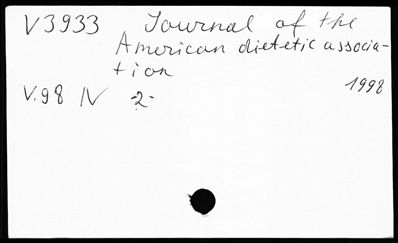 V3933 Journal of the
American dietetic associa-
tion
1998
V.98 IV -2-